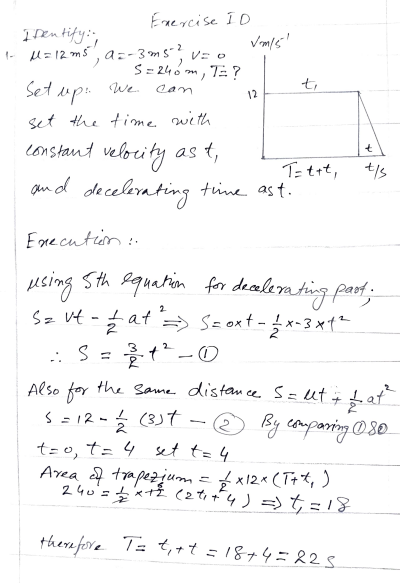 Exercise 1D
Identify:.
1- u=12ms⁻¹, a=-3ms⁻², v=0
S=240m, T=?
v m/s⁻¹
12
t₁
t
T=t+t₁
t/s
Set up:. We can
set the time with
constant velocity as t₁
and decelerating time as t.
Execution:.
Using 5th equation for decelerating part;
S = vt - 1/2 at² ⇒ S=0xt - 1/2 x-3xt²
∴ S = 3/2 t² — ①
Also for the same distance S = ut + 1/2 at²
S = 12 - 1/2 (3)t — ② By comparing ①&②
t=0, t=4 set t=4
Area of trapezium = 1/2 x12x(T+t₁)
240 = 1/2 x12 (2t₁+4) ⇒ t₁=18
therefore T= t₁+t = 18+4 = 22s